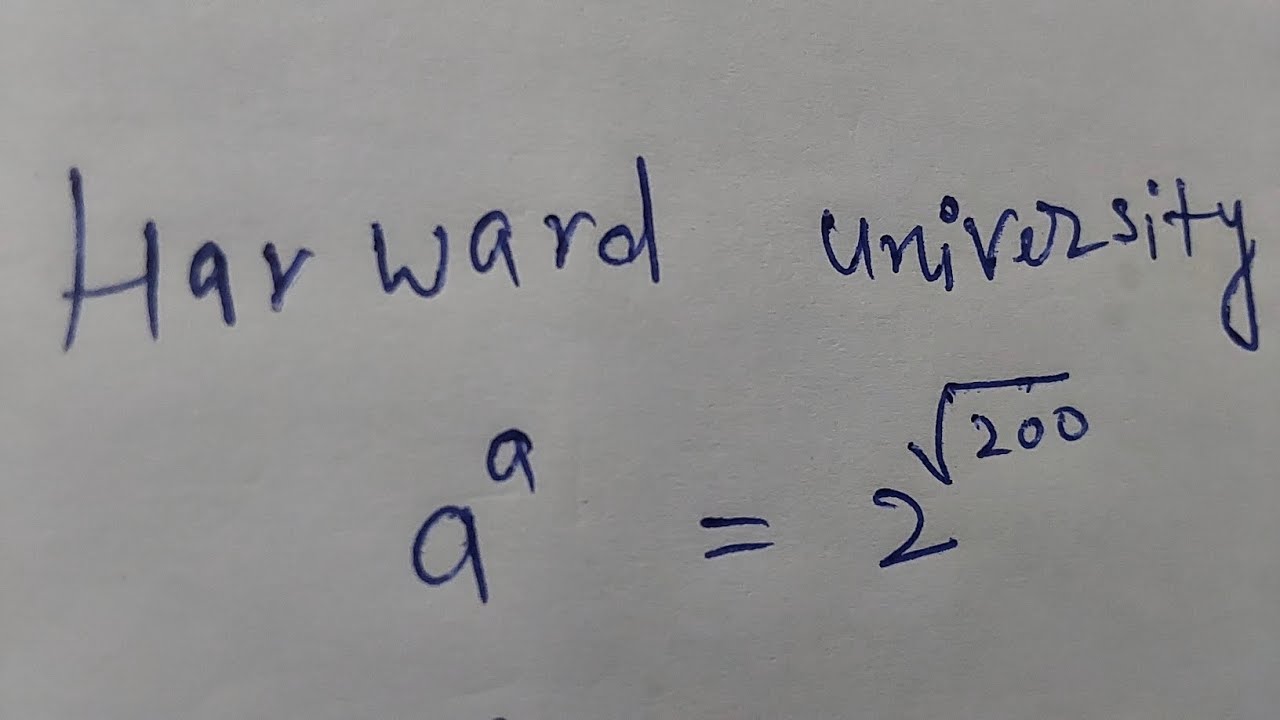 Harward university
a^a = 2^√200